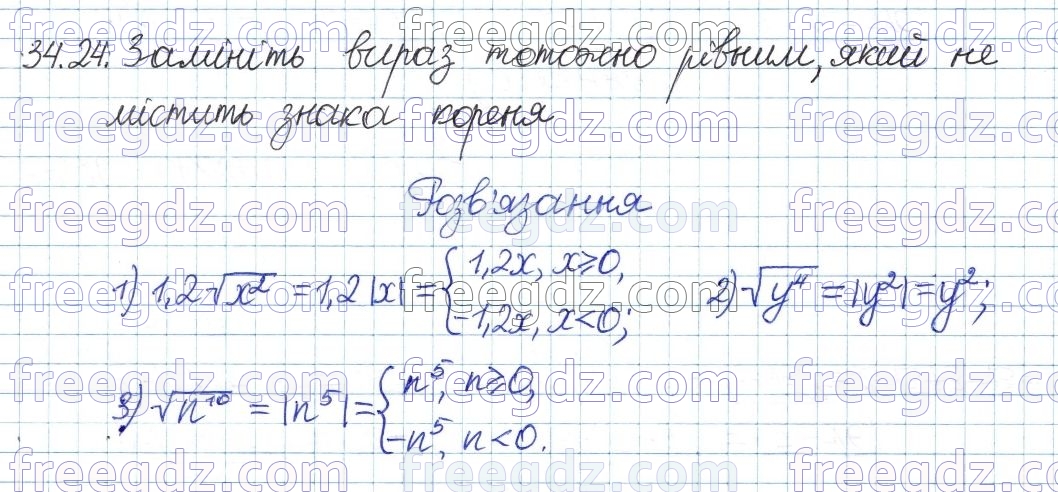 34.24. Замініть вираз тотожно рівним, який не
містить знака кореня
Розв'язання
1) 1,2√x² = 1,2|x| = { 1,2x, x≥0,
-1,2x, x<0; 2) √y⁴ = |y²| = y²;
3) √n¹⁰ = |n⁵| = { n⁵, n≥0,
-n⁵, n<0.
freegdz.com freegdz.com freegdz.com
freegdz.com freegdz.com freegdz.com
freegdz.com freegdz.com freegdz.com
freegdz.com freegdz.com freegdz.com
freegdz.com freegdz.com freegdz.com
freegdz.com freegdz.com freegdz.com